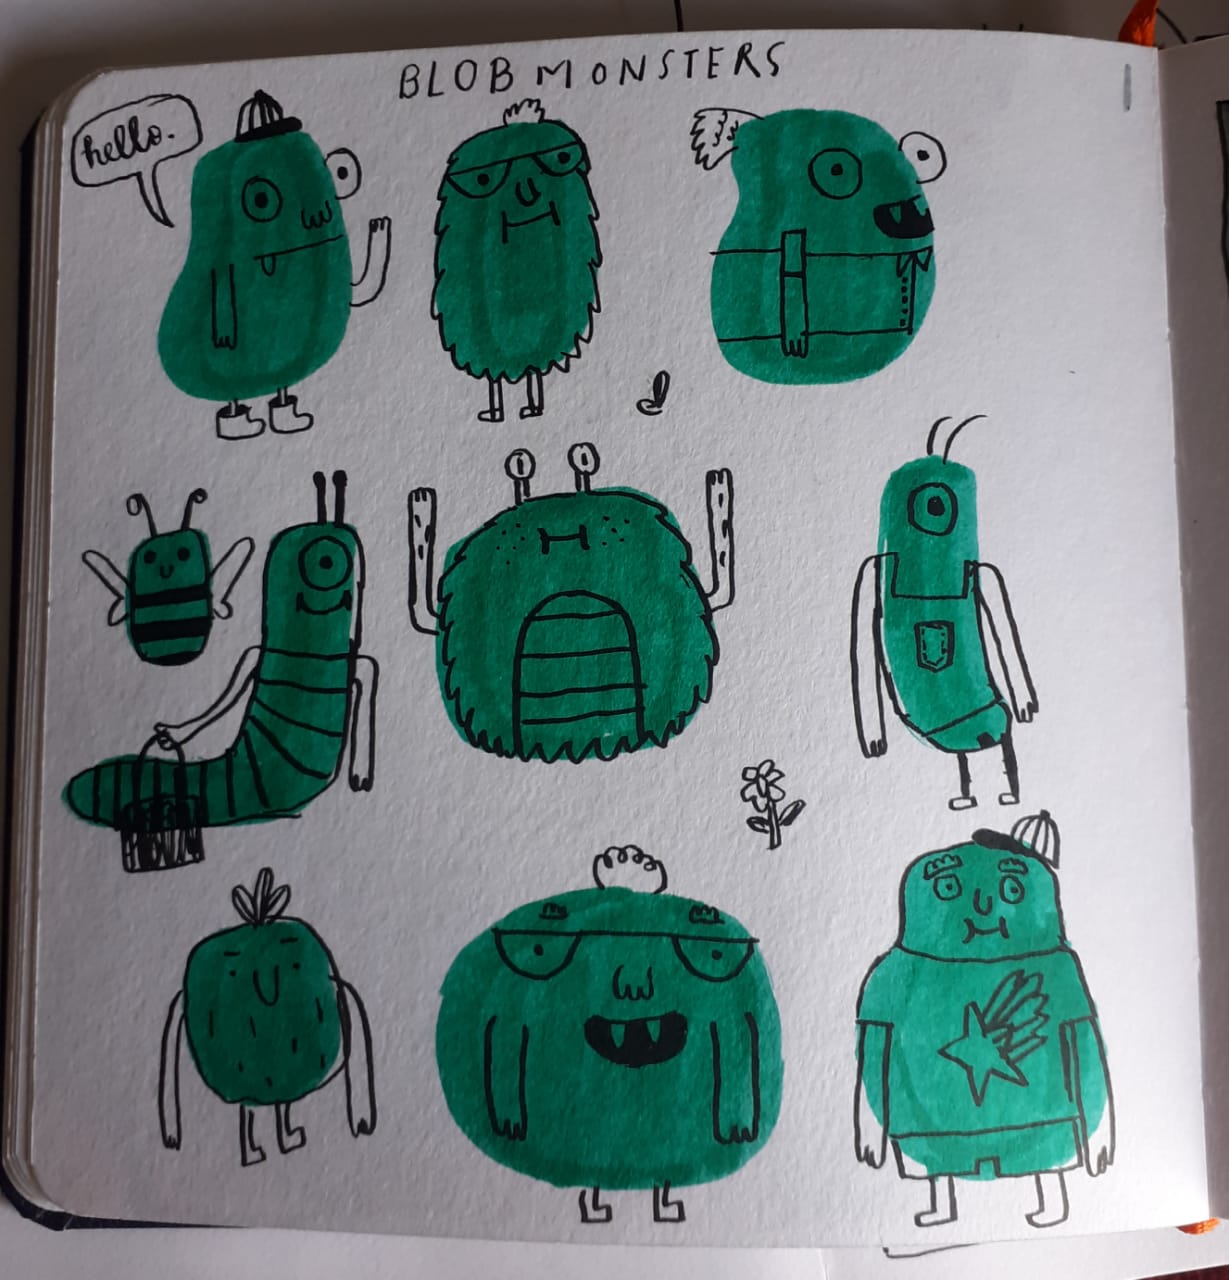 BLOB MONSTERS
hello.